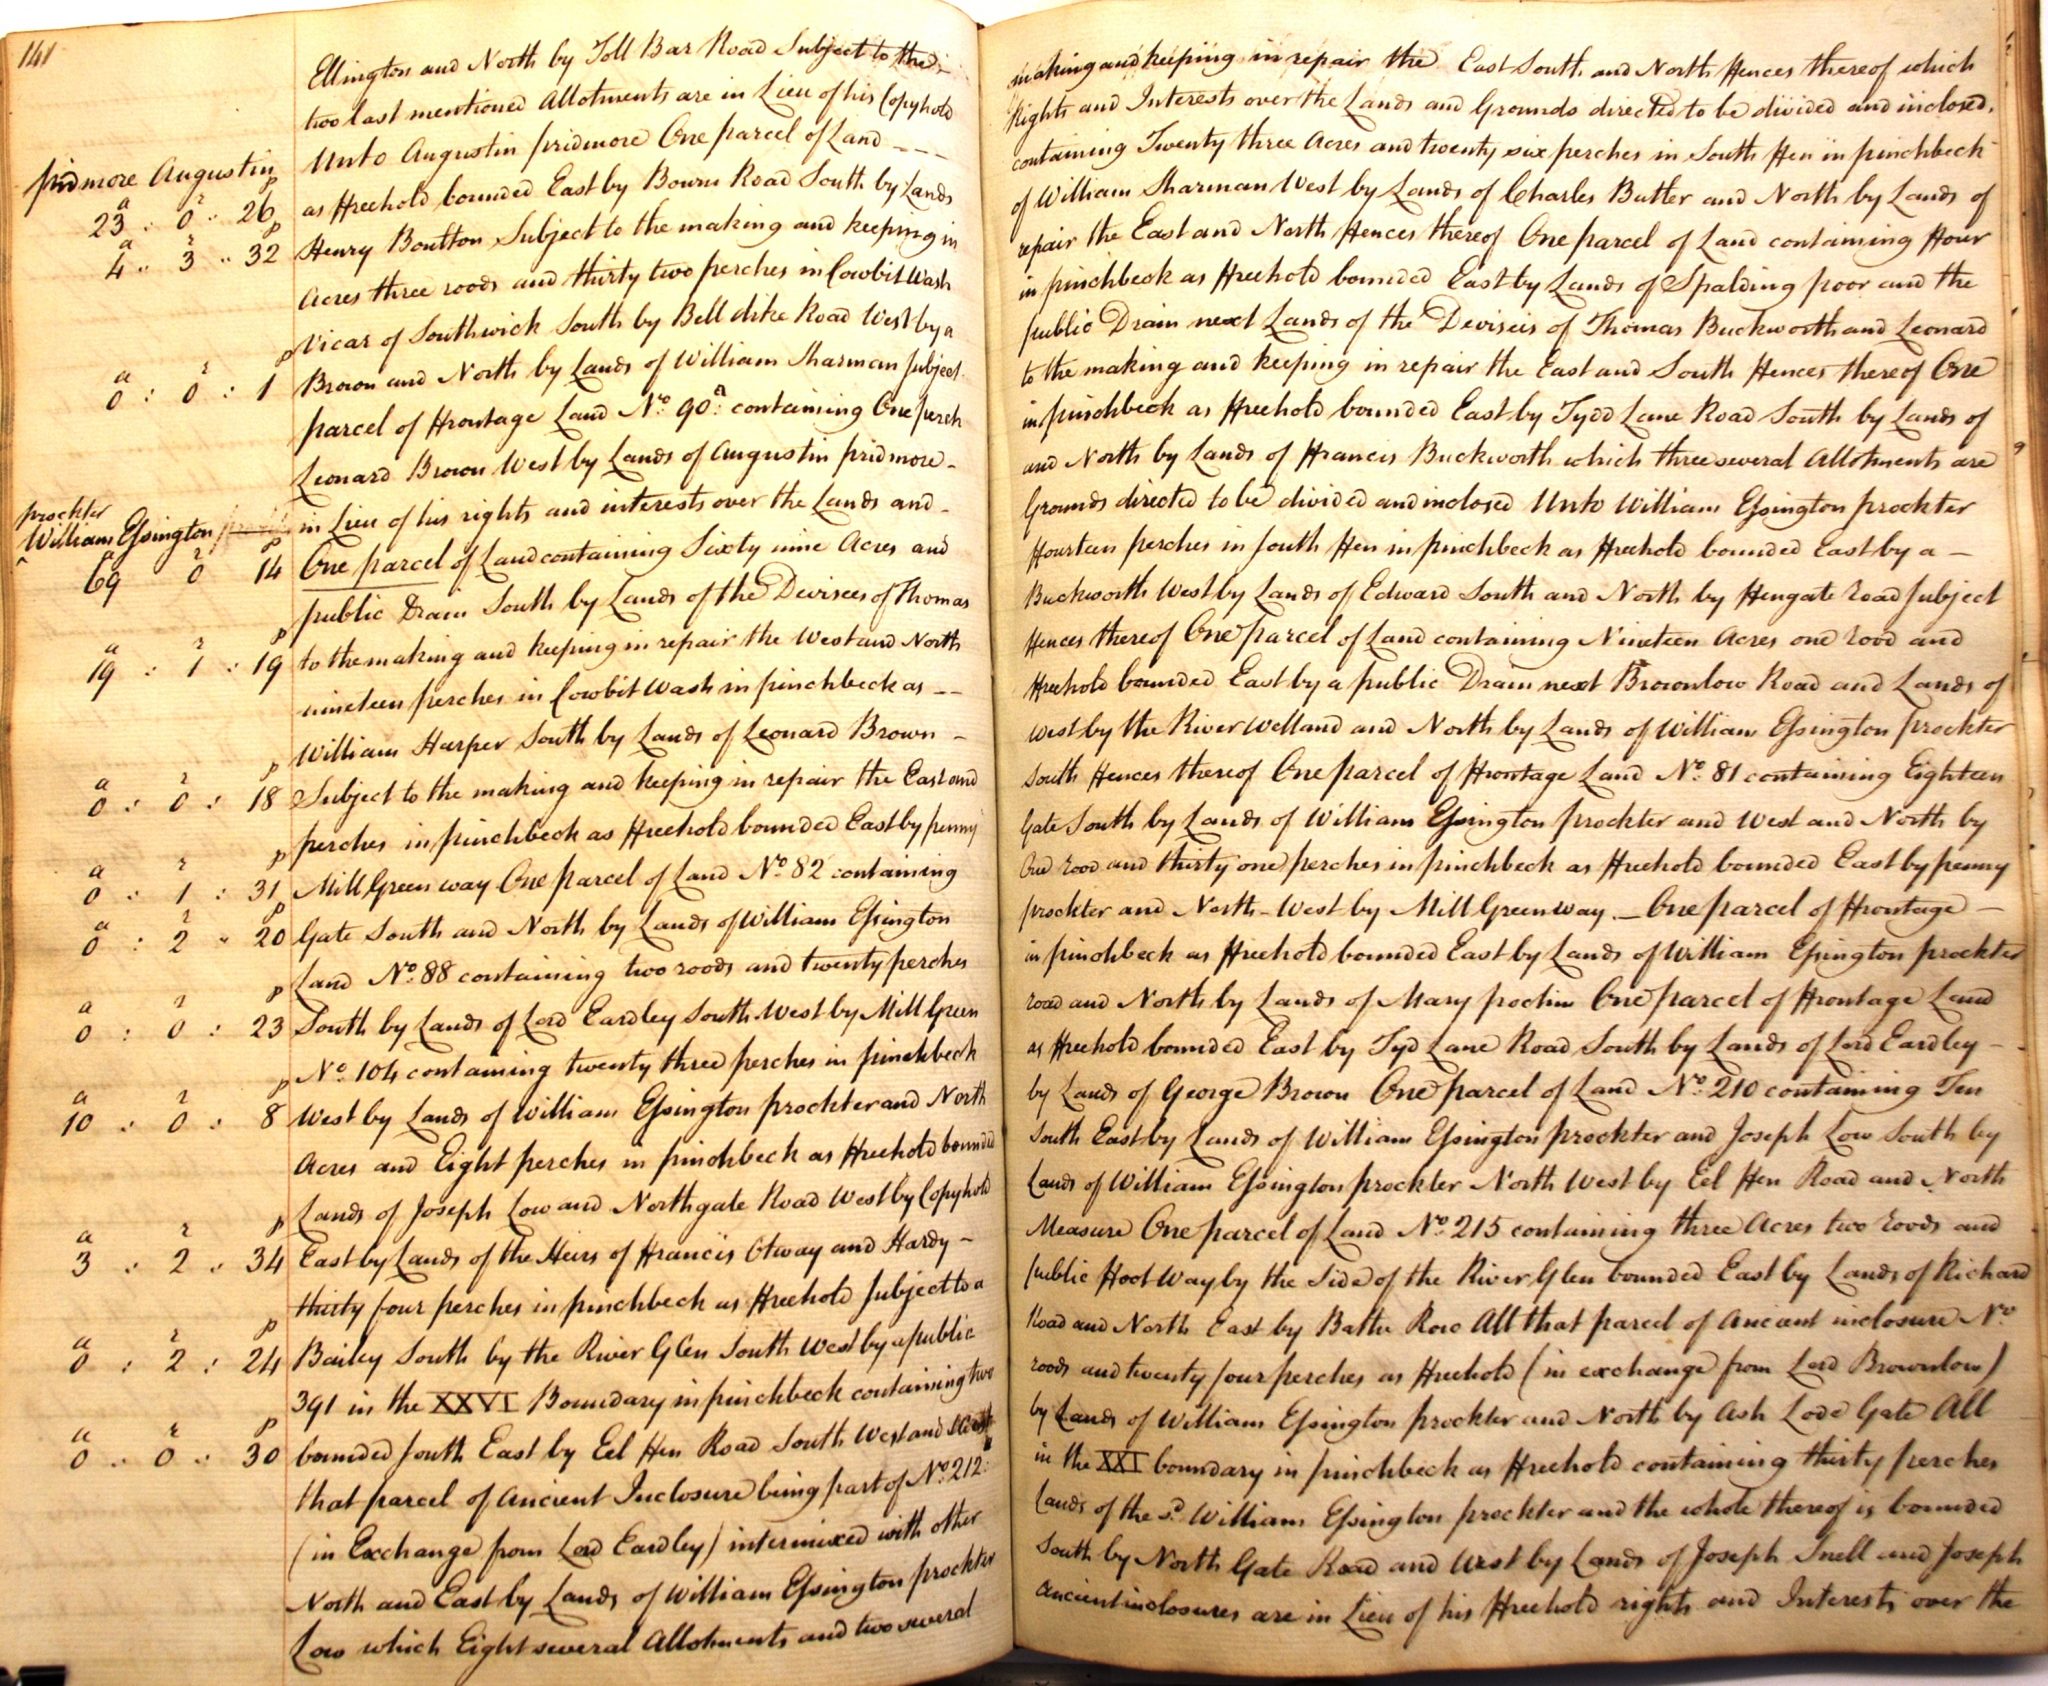 141
Ellington and North by Toll Bar Road Subject to the
making and keeping in repair the East South and North Fences thereof which
two last mentioned Allotments are in Lieu of his Copyhold
Rights and Interests over the Lands and Grounds directed to be divided and inclosed.
pridmore Augustin
Unto Augustin pridmore One parcel of Land
containing Twenty three Acres and twenty six perches in South Fen in pinchbeck
a r p
23 : 0 : 26
as Freehold bounded East by Bourn Road South by Lands
of William Sharman West by Lands of Charles Butler and North by Lands of
a r p
4 : 3 : 32
Henry Boulton Subject to the making and keeping in
repair the East and North Fences thereof One parcel of Land containing Four
Acres three roods and thirty two perches in Cowbit Wash
in pinchbeck as Freehold bounded East by Lands of Spalding poor and the
Vicar of Southwick South by Bell dike Road West by a
public Drain next Lands of the Devisees of Thomas Buckworth and Leonard
a r p
0 : 0 : 1
Brown and North by Lands of William Sharman subject
to the making and keeping in repair the East and South Fences thereof One
parcel of Frontage Land No. 90a. containing One perch
in pinchbeck as Freehold bounded East by Tydd Lane Road South by Lands of
Leonard Brown West by Lands of Augustin pridmore
and North by Lands of Francis Buckworth which three several Allotments are
prockter
William Essington
in Lieu of his rights and interests over the Lands and
Grounds directed to be divided and inclosed Unto William Essington prockter
a r p
69 0 14
One parcel of Land containing Sixty nine Acres and
Fourteen perches in South Fen in pinchbeck as Freehold bounded East by a
public Drain South by Lands of the Devisees of Thomas
Buckworth West by Lands of Edward South and North by Fengate road subject
a r p
19 : 1 : 19
to the making and keeping in repair the West and North
Fences thereof One parcel of Land containing Nineteen Acres one rood and
nineteen perches in Cowbit Wash in pinchbeck as
Freehold bounded East by a public Drain next Brownlow Road and Lands of
William Harper South by Lands of Leonard Brown
West by the River Welland and North by Lands of William Essington prockter
a r p
0 : 0 : 18
Subject to the making and keeping in repair the East and
South Fences thereof One parcel of Frontage Land No. 81 containing Eighteen
perches in pinchbeck as Freehold bounded East by penny
Gate South by Lands of William Essington prockter and West and North by
a r p
0 : 1 : 31
Mill Green way One parcel of Land No. 82 containing
One rood and thirty one perches in pinchbeck as Freehold bounded East by penny
a r p
0 : 2 : 20
Gate South and North by Lands of William Essington
prockter and North-West by Mill Green way One parcel of Frontage
Land No. 88 containing two roods and twenty perches
in pinchbeck as Freehold bounded East by Lands of William Essington prockter
a r p
0 : 0 : 23
South by Lands of Lord Eardley South West by Mill Green
road and North by Lands of Mary One parcel of Frontage Land
No. 104 containing twenty three perches in pinchbeck
as Freehold bounded East by Tyd Lane Road South by Lands of Lord Eardley
a r p
10 : 0 : 8
West by Lands of William Essington prockter and North
by Lands of George Brown One parcel of Land No. 210 containing Ten
Acres and Eight perches in pinchbeck as Freehold bounded
South East by Lands of William Essington prockter and Joseph Low South by
Lands of Joseph Low and Northgate Road West by Copyhold
Lands of William Essington prockter North West by Eel Fen Road and North
a r p
3 : 2 : 34
East by Lands of the Heirs of Francis Otway and Hardy
Measure One parcel of Land No. 215 containing three Acres two roods and
thirty four perches in pinchbeck as Freehold subject to a
public Foot Way by the Side of the River Glen bounded East by Lands of Richard
a r p
0 : 2 : 24
Bailey South by the River Glen South West by a public
Road and North East by Bathe Row All that parcel of Ancient inclosure No.
391 in the XXVI Boundary in pinchbeck containing two
roods and twenty four perches as Freehold (in exchange from Lord Brownlow)
a r p
0 : 0 : 30
bounded South East by Eel Fen Road South West and West
by Lands of William Essington prockter and North by Ash Lode Gate All
that parcel of Ancient Inclosure being part of No. 212
in the XXI boundary in pinchbeck as Freehold containing thirty perches
(in Exchange from Lord Eardley) intermixed with other
Lands of the sd. William Essington prockter and the whole thereof is bounded
North and East by Lands of William Essington prockter
South by North Gate Road and West by Lands of Joseph Snell and Joseph
Low which Eight several Allotments and two several
Ancient inclosures are in Lieu of his Freehold rights and Interests over the